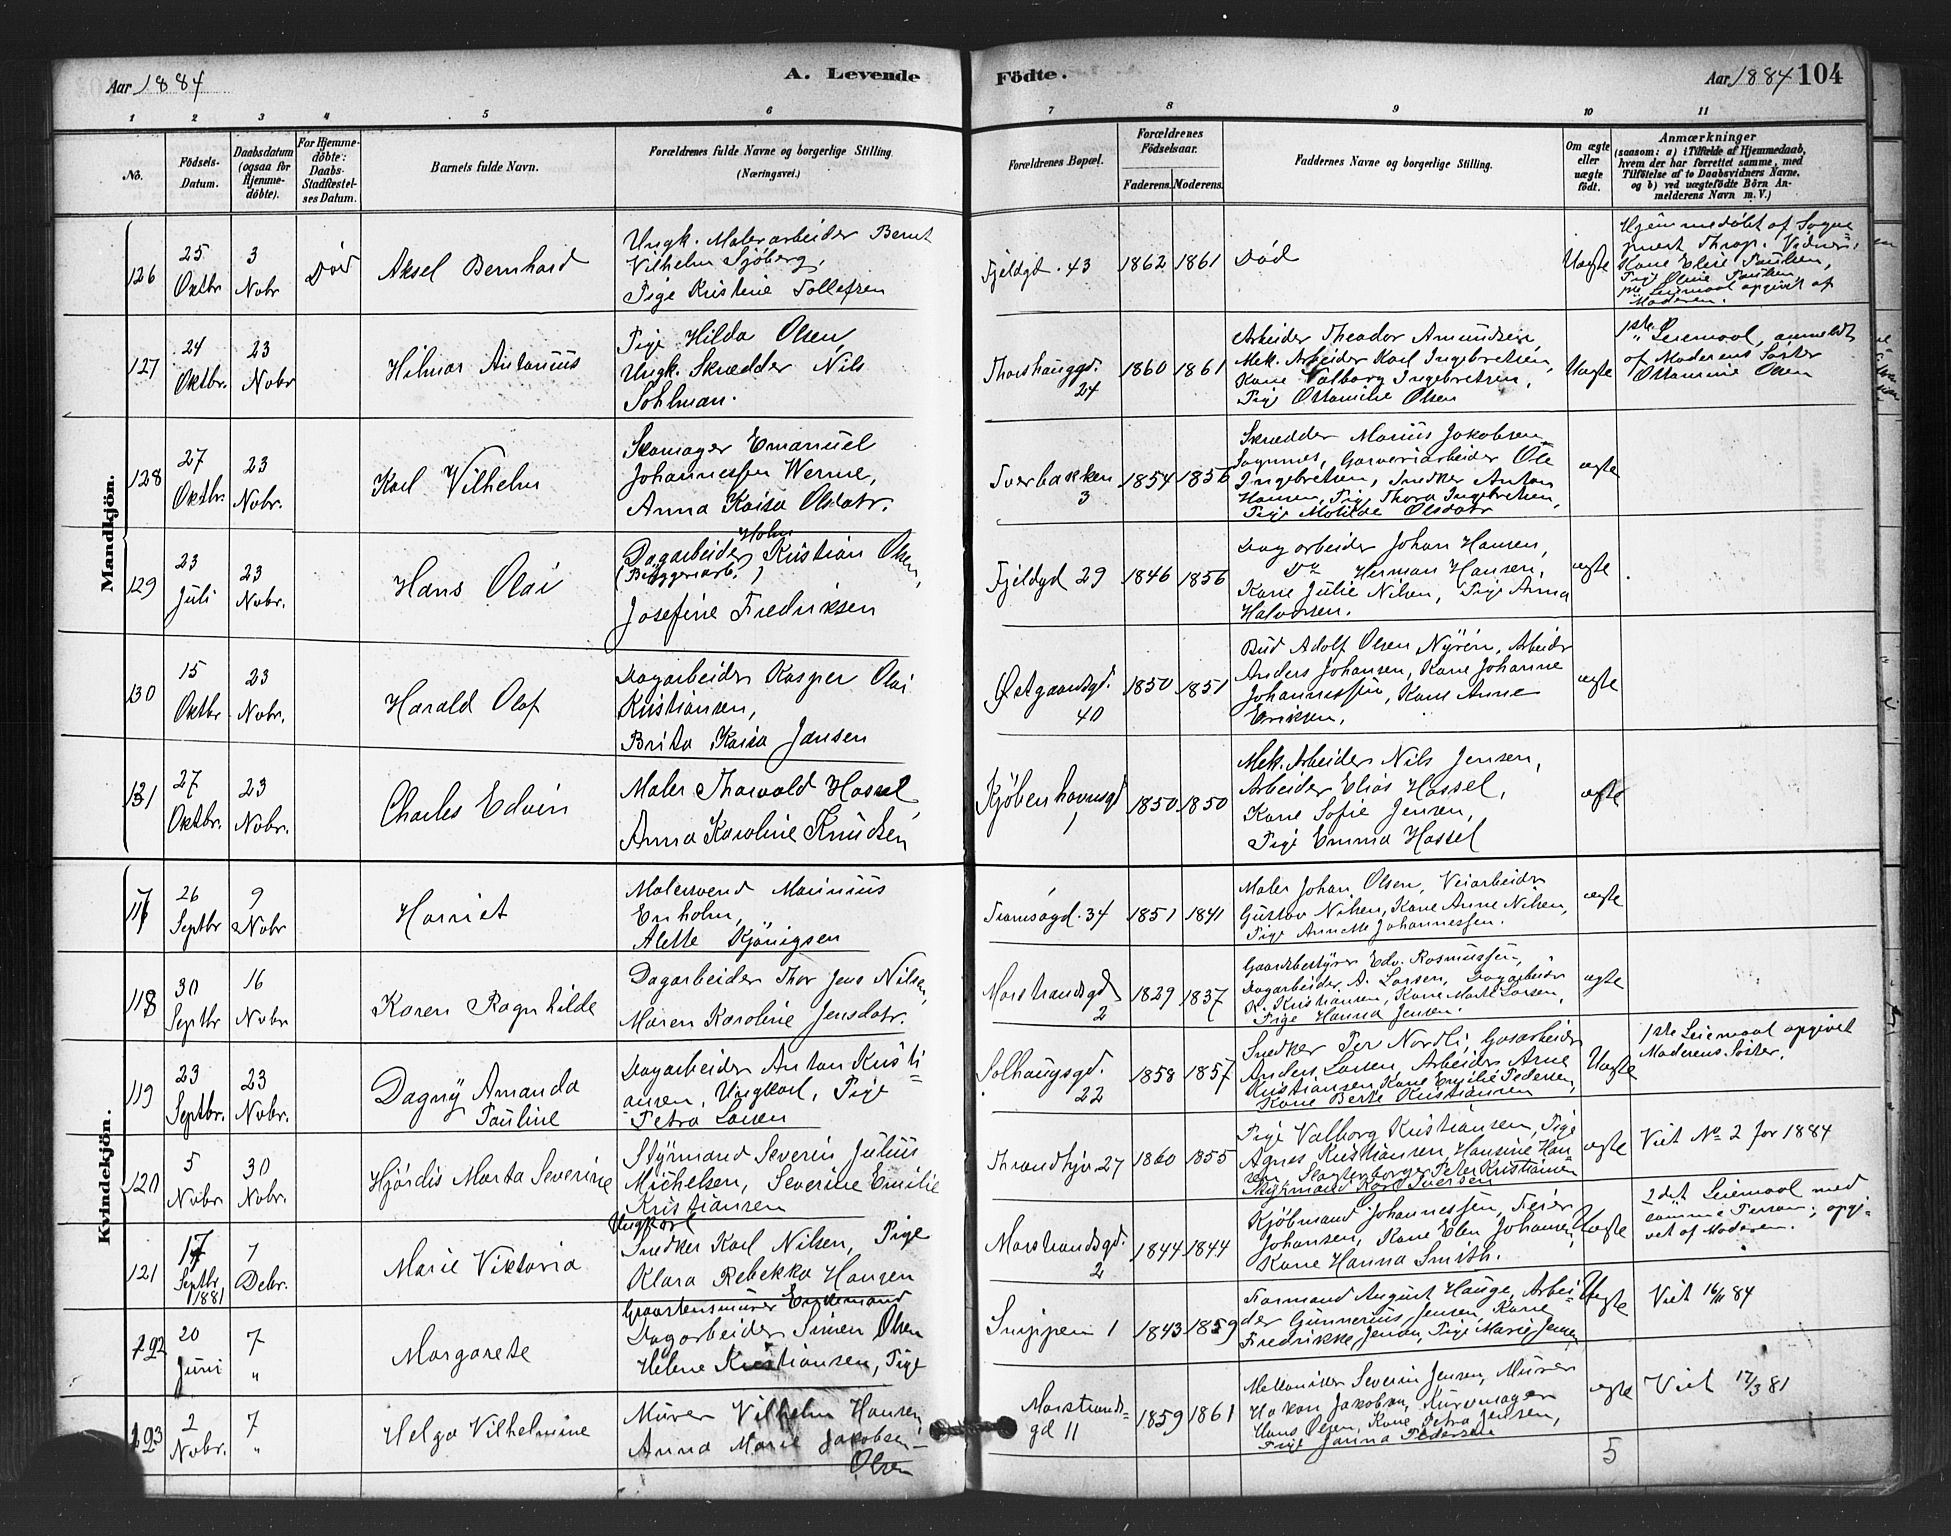 Aar 1884
A. Levende
Födte.
Aar 1884 104
1 2 3 4 5 6 7 8 9 10 11
No.
Födsels-Datum.
Daabsdatum (ogsaa for Hjemmedöbte).
For Hjemmedöbte: Daabs-Stadfæstelses Datum.
Barnets fulde Navn.
Forældrenes fulde Navne og borgerlige Stilling.
(Næringsvei.)
Forældrenes Bopæl.
Forældrenes Födselsaar.
Faderens. Moderens.
Faddernes Navne og borgerlige Stilling.
Om ægte eller uægte födt.
Anmærkninger
(saasom: a) i Tilfælde af Hjemmedaab,
hvem der har forrettet samme, med
Tilföielse af to Daabsvidners Navne,
og b) ved uægtefödte Börn Anmelderens Navn m. V.)
Mandkjön.
126
25 Oktbr
3 Nobr
Död
Aksel Bernhard
Ungk. Malerarbeider Bernt
Vilhelm Sjöberg,
Pige Kristine Tollefsen
Fjeldgd. 43
1862 1861
Död
Uægte
Hjemmedöbt af Sogne
prest Throp. Vidner:
Kone Elise Paulsen,
Pige Oline Paulsen
Leiermaal opgivet af
Moderen.
127
24 Oktbr.
23 Nobr
Hilmar Antonius
Pige Hilda Olsen,
Ungk. Skrædder Nils
Sohlman.
Thorshauggd.
24
1860 1861
Arbeider Theodor Amundsen,
Mek. Arbeider Karl Ingebretsen,
Kone Valborg Ingebretsen,
Pige Ottomine Olsen
Uægte
1ste Leiermaal, anmeldt
af Moderens Söster
Ottomine Olsen
128
27 Oktbr.
23 Nobr.
Karl Vilhelm
Skomager Emanuel
Johannessen Werme,
Anna Kaisa Olsdatr.
Tverbakken
3
1854 1856
Skrædder Marius Jakobsen
Garveriarbeider Ole
Ingebretsen, Snedker Anton
Hansen, Pige Thora Ingebretsen,
Pige Motilde Olsdatr
ægte
129
23 Juli
23 Nobr.
Hans Olai
Holm
Dagarbeider Kristian Olsen,
(Bryggeriarb.)
Josefine Fredriksen
Fjeldgd 29
1846 1856
Dagarbeider Johan Hansen,
Do Herman Hansen,
Kone Julie Nilsen, Pige Anna
Halvorsen.
ægte
130
15 Oktbr
23 Nobr.
Harald Olaf
Dagarbeider Kasper Olai
Kristiansen,
Brita Kaisa Jansen
Østgaardsgd.
40
1850 1851
Bud Adolf Olsen Nyrön, Arbeider
Anders Johansen, Kone Johanne
Johannessen, Kone Anne
Eriksen.
ægte
131
27 Oktbr.
23 Nobr.
Charles Edvin
Maler Thorvald Hassel,
Anna Karoline Knudsen
Kjöbenhavnsgd
1
1850 1850
Mek. Arbeider Nils Jensen,
Arbeider Elias Hassel,
Kone Sofie Jensen,
Pige Emma Hassel
ægte
Kvindekjön.
117
26 Septbr
9 Nobr
Harriet
Malersvend Marinius
Enholm,
Alette Kjönigsen
Tromsögd. 34
1851 1841
Maler Johan Olsen, Veiarbeider
Gustav Nilsen, Kone Anne Nilsen,
Pige Annette Johannessen.
ægte
118
30 Septbr
16 Nobr
Karen Ragnhilde
Dagarbeider Thor Jens Nilsen,
Maren Karoline Jensdatr.
Marstrandsgd
2
1829 1837
Gaardbestyrer Edv. Rasmussen,
Dagarbeider A. Larsen, Dagarbeider
K. Kristiansen, Kone Marte Larsen,
Pige Hanna Jensen.
ægte
119
23 Septbr.
23 Nobr.
Dagny Amanda
Pauline
Dagarbeider Anton Kristi-
ansen, Ungkarl, Pige
Petra Larsen
Solhaugsgd.
22
1858 1857
Snedker Per Nordli, Gasarbeider
Anders Larsen, Arbeider Arne
Kristiansen, Kone Emilie Pedersen,
Kone Berte Kristiansen
Uægte
1ste Leiermaal opgivet
Moderens Söster.
120
5 Nobr.
30 Nobr.
Hjördis Marta Severine
Styrmand Severin Julius
Michelsen, Severine Emilie
Kristiansen
Throndhjv 27
1860 1855
Pige Valborg Kristiansen, Pige
Agnes Kristiansen, Hansine Han-
sen, Peter Kristiansen
Styrmand Karl Iversen
ægte
Viet No 2 for 1884
121
17 Septbr. 1881
7 Debr.
Marie Viktoria
Ungkarl
Snedker Karl Nilsen, Pige
Klara Rebekka Hansen
Marstrandsgd.
2
1844 1844
Kjöbmand Johannessen, Feier
Johansen, Kone Elen Johansen,
Kone Hanna Smith.
Uægte
2det Leiermaal med
samme Person; opgi-
vet af Moderen.
122
20 Juni
7 "
Margarete
Graastensmurer Enkemand
Dagarbeider Simen Olsen
Helene Kristiansen, Pige
Snippen 1
1843 1859
Formand August Hauge, Arbei-
der Gunnerius Jensen, Kone
Fredrikke Jensen, Pige Marie Jensen
Uægte
Viet 16/11 84
123
2 Nobr.
7 "
Helga Vilhelmine
Murer Vilhelm Hansen,
Anna Marie Jakobsen
Olsen
Marstrands-
gd 11
1859 1861
Mekaniker Severin Jensen, Murer
Hakon Jakobsen, Kurvmager
Hans Olsen, Kone Petra Jensen,
Pige Janna Pedersen
ægte
Viet 17/3 81
5